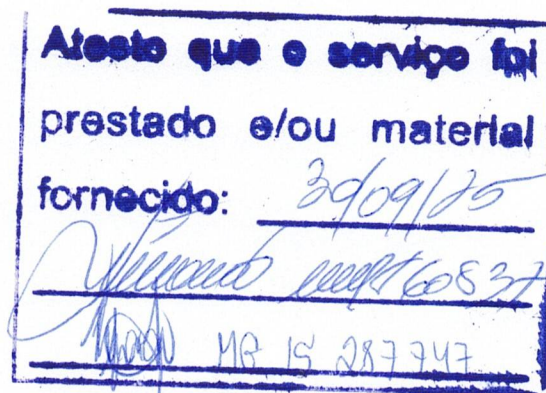 Atesto que o serviço foi
prestado e/ou material
fornecido: 30/09/25
60837
MG 15 287747